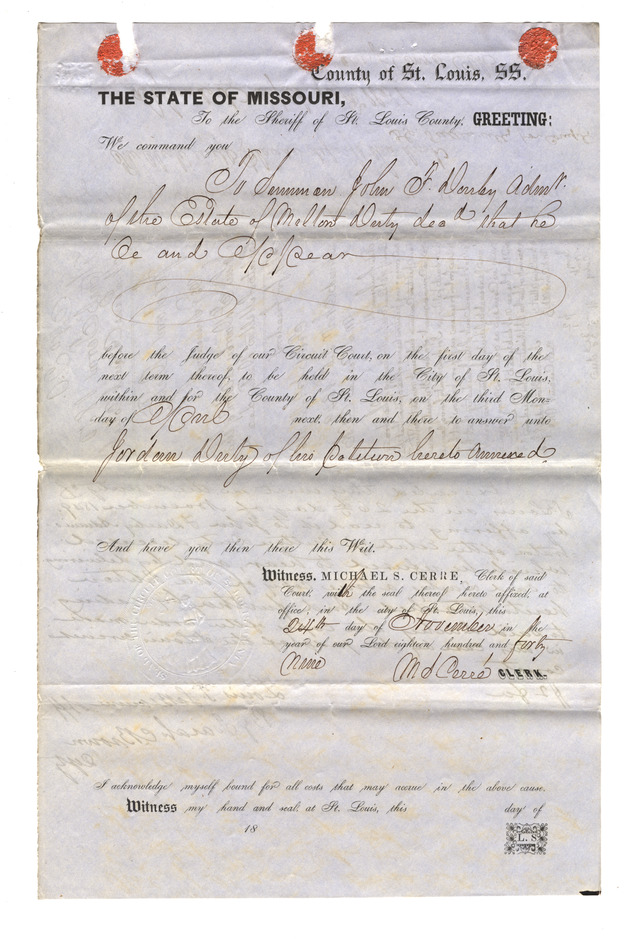 County of St. Louis, SS.
THE STATE OF MISSOURI,
To the Sheriff of St. Louis County, GREETING:
We command you
To Summon John F. Darby Admr.
of the Estate of Derty decd that he
be and appear
before the Judge of our Circuit Court, on the first day of the
next term thereof, to be held in the City of St. Louis,
within and for the County of St. Louis, on the third Mon-
day of April next, then and there to answer unto
Jordan Derty of his petition hereto annexed.
And have you then there this Writ.
Witness, MICHAEL S. CERRE, Clerk of said
Court, with the seal thereof hereto affixed, at
office, in the city of St. Louis, this
day of November in the
year of our Lord eighteen hundred and forty
nine
M S Cerré CLERK.
I acknowledge myself bound for all costs that may accrue in the above cause.
Witness my hand and seal, at St. Louis, this day of
18
L. S.